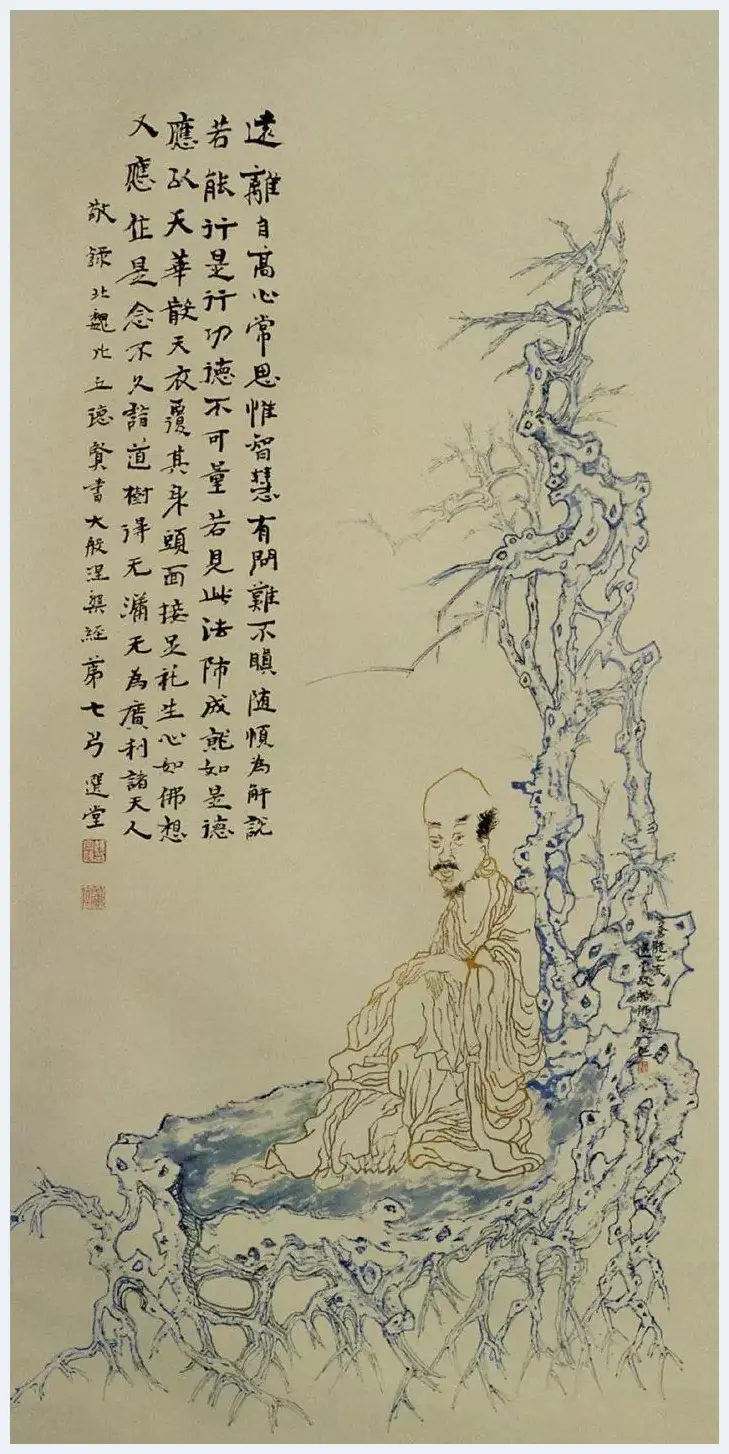 遠離自高心常思惟智慧有問難不瞋随順為解說
若能行是行功德不可量若見此法師成就如是德
應以天華散天衣覆其身頭面接足礼生心如佛想
又應作是念不久詣道樹得无漏无為廣利諸天人
敬錄北魏比丘德賢書大般涅槃經第七弓選堂
乙亥
選堂
佛